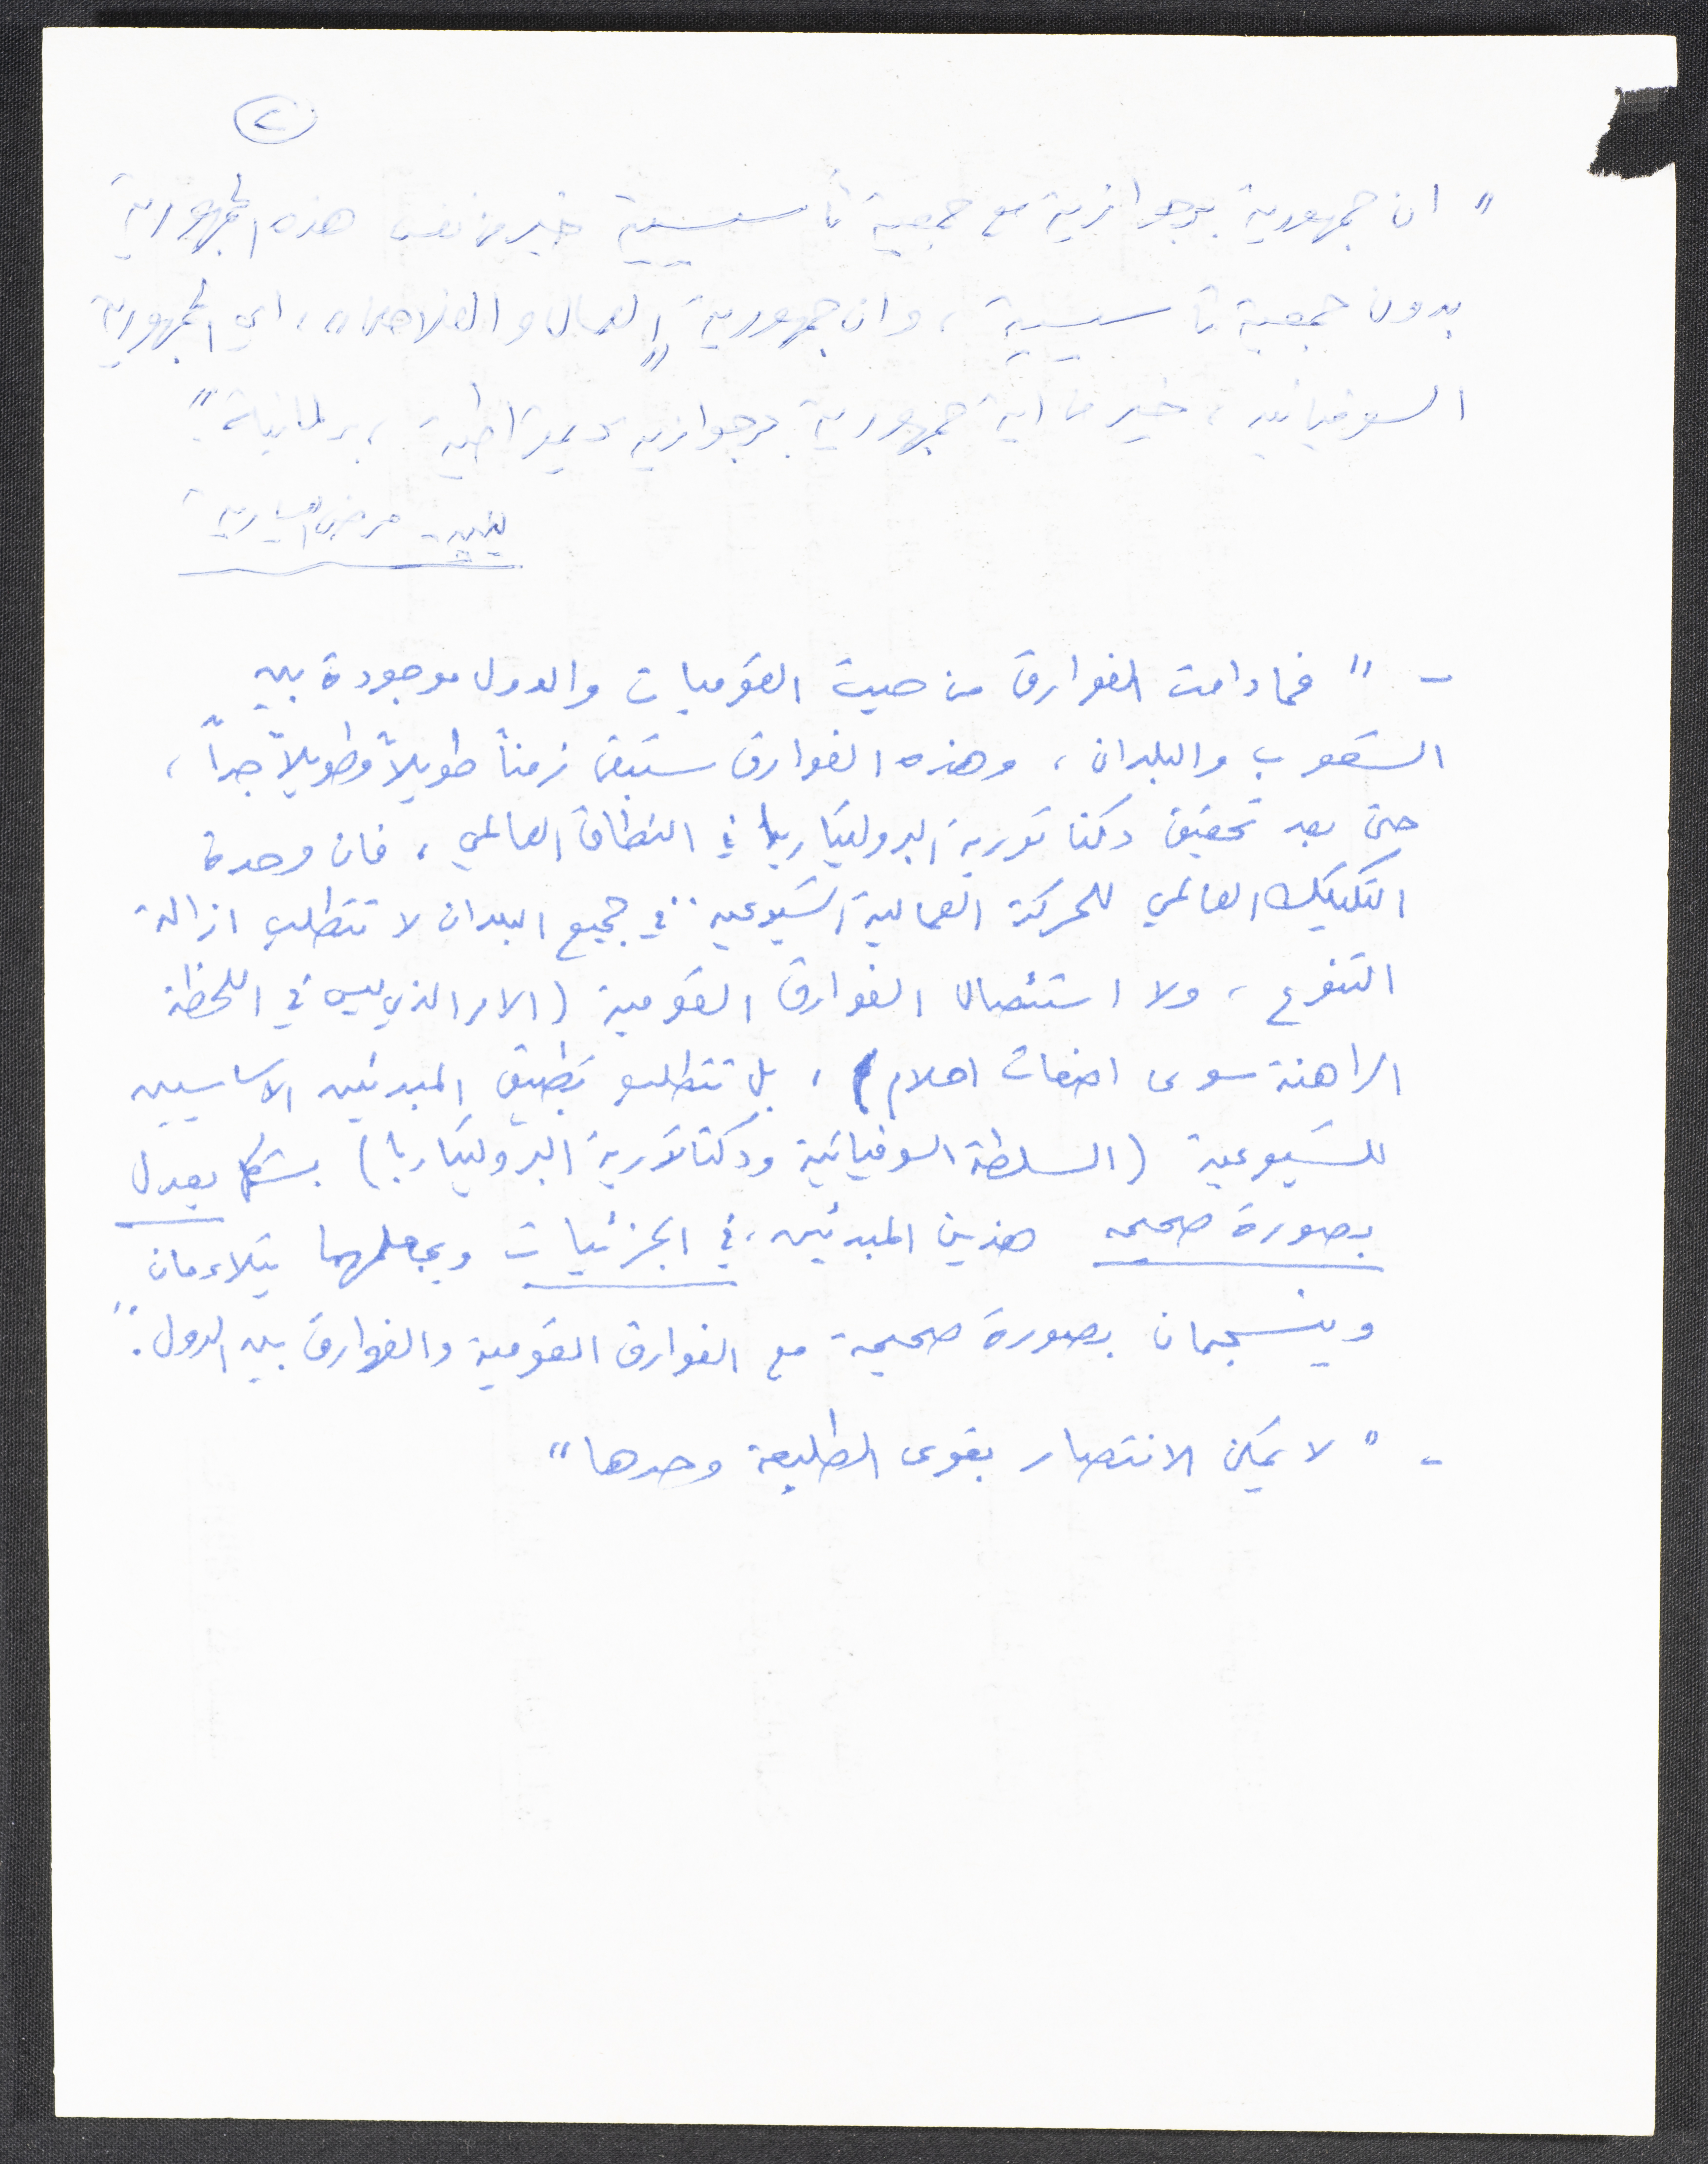 ٢
" ان جمهورية برجوازية مع جمعية تأسيسية خير من نفس هذه الجمهورية
بدون جمعية تأسيسية، وان جمهورية "العمال والفلاحين، اي الجمهورية
السوفياتيه، خير من اية جمهورية برجوازيه ديمقراطية، برلمانية"
لينين - مرض اليسارية
- " فما دامت الفوارق من حيث القوميات والدول موجودة بين
الشعوب والبلدان، وهذه الفوارق ستبقى زمناً طويلاً وطويلاً جداً،
حتى بعد تحقيق دكتاتورية البروليتاريا في النطاق العالمي، فان وحدة
التكتيك العالمي للحركة العمالية الشيوعيه .. في جميع البلدان لا تتطلب ازالة
التنوع، ولا استئصال الفوارق القومية (الامر الذي ليس في اللحظة
الراهنة سوى اضغاث احلام)، بل تتطلب تطبيق المبدئين الاساسيين
للشيوعية (السلطة السوفياتية ودكتاتورية البروليتاريا) بشكل يعدل
بصورة صحيحه هذين المبدئين، في الجزئيات ويجعلهما يتلاءمان
وينسجمان بصورة صحيحة مع الفوارق القومية والفوارق بين الدول."
- " لا يمكن الانتصار بقوى الطليعة وحدها"